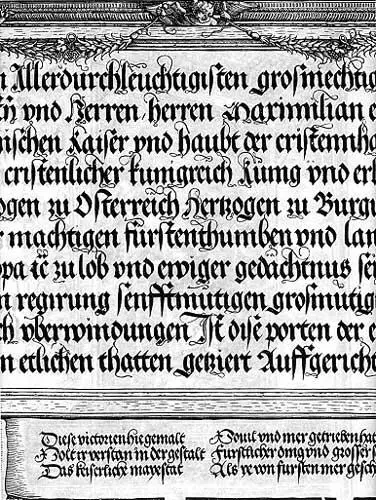 n Allerdurchleuchtigisten grosmechtig
vnd Herren herren Maximilian e
nischen Kaiser vnd haubt der cristennha
cristenlicher kunigreich Küng vnd er
ogen zu Osterreich Hertzogen zu Burgu
r machtigen furstenthumben vnd lan
opa ic zu lob vnd ewiger gedachtnus sei
n regirung senfftmutigen grosmutig
ch vberwindungen Ist dise porten der e
n etlichen thatten getziert Auffgericht
Diese victorien hie gemalt
Solt ir verstan in der gestalt
Das keiserliche mayestat
vnd mer getrieben hat
Furstlicher ding vnd grosser s
Als ye von fursten mer gesch